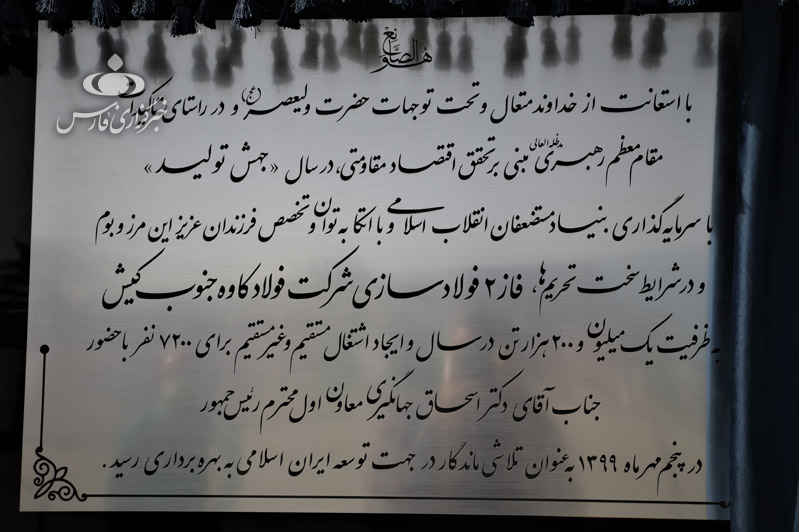 هو الصانع
با استعانت از خداوند متعال و تحت توجهات حضرت ولیعصر (عج) و در راستای تاکیدات
مقام معظم رهبری مدظله العالی مبنی بر تحقق اقتصاد مقاومتی، در سال «جهش تولید»
با سرمایه گذاری بنیاد مستضعفان انقلاب اسلامی و با اتکا به توان و تخصص فرزندان عزیز این مرز و بوم
و در شرایط سخت تحریم‌ها، فاز ۲ فولادسازی شرکت فولاد کاوه جنوب کیش
به ظرفیت یک میلیون و ۲۰۰ هزار تن در سال و ایجاد اشتغال مستقیم و غیر مستقیم برای ۷۲۰۰ نفر با حضور
جناب آقای دکتر اسحاق جهانگیری معاون اول محترم رئیس جمهور
در پنجم مهر ماه ۱۳۹۹ به عنوان تلاشی ماندگار در جهت توسعه ایران اسلامی به بهره برداری رسید.
خبرگزاری فارس